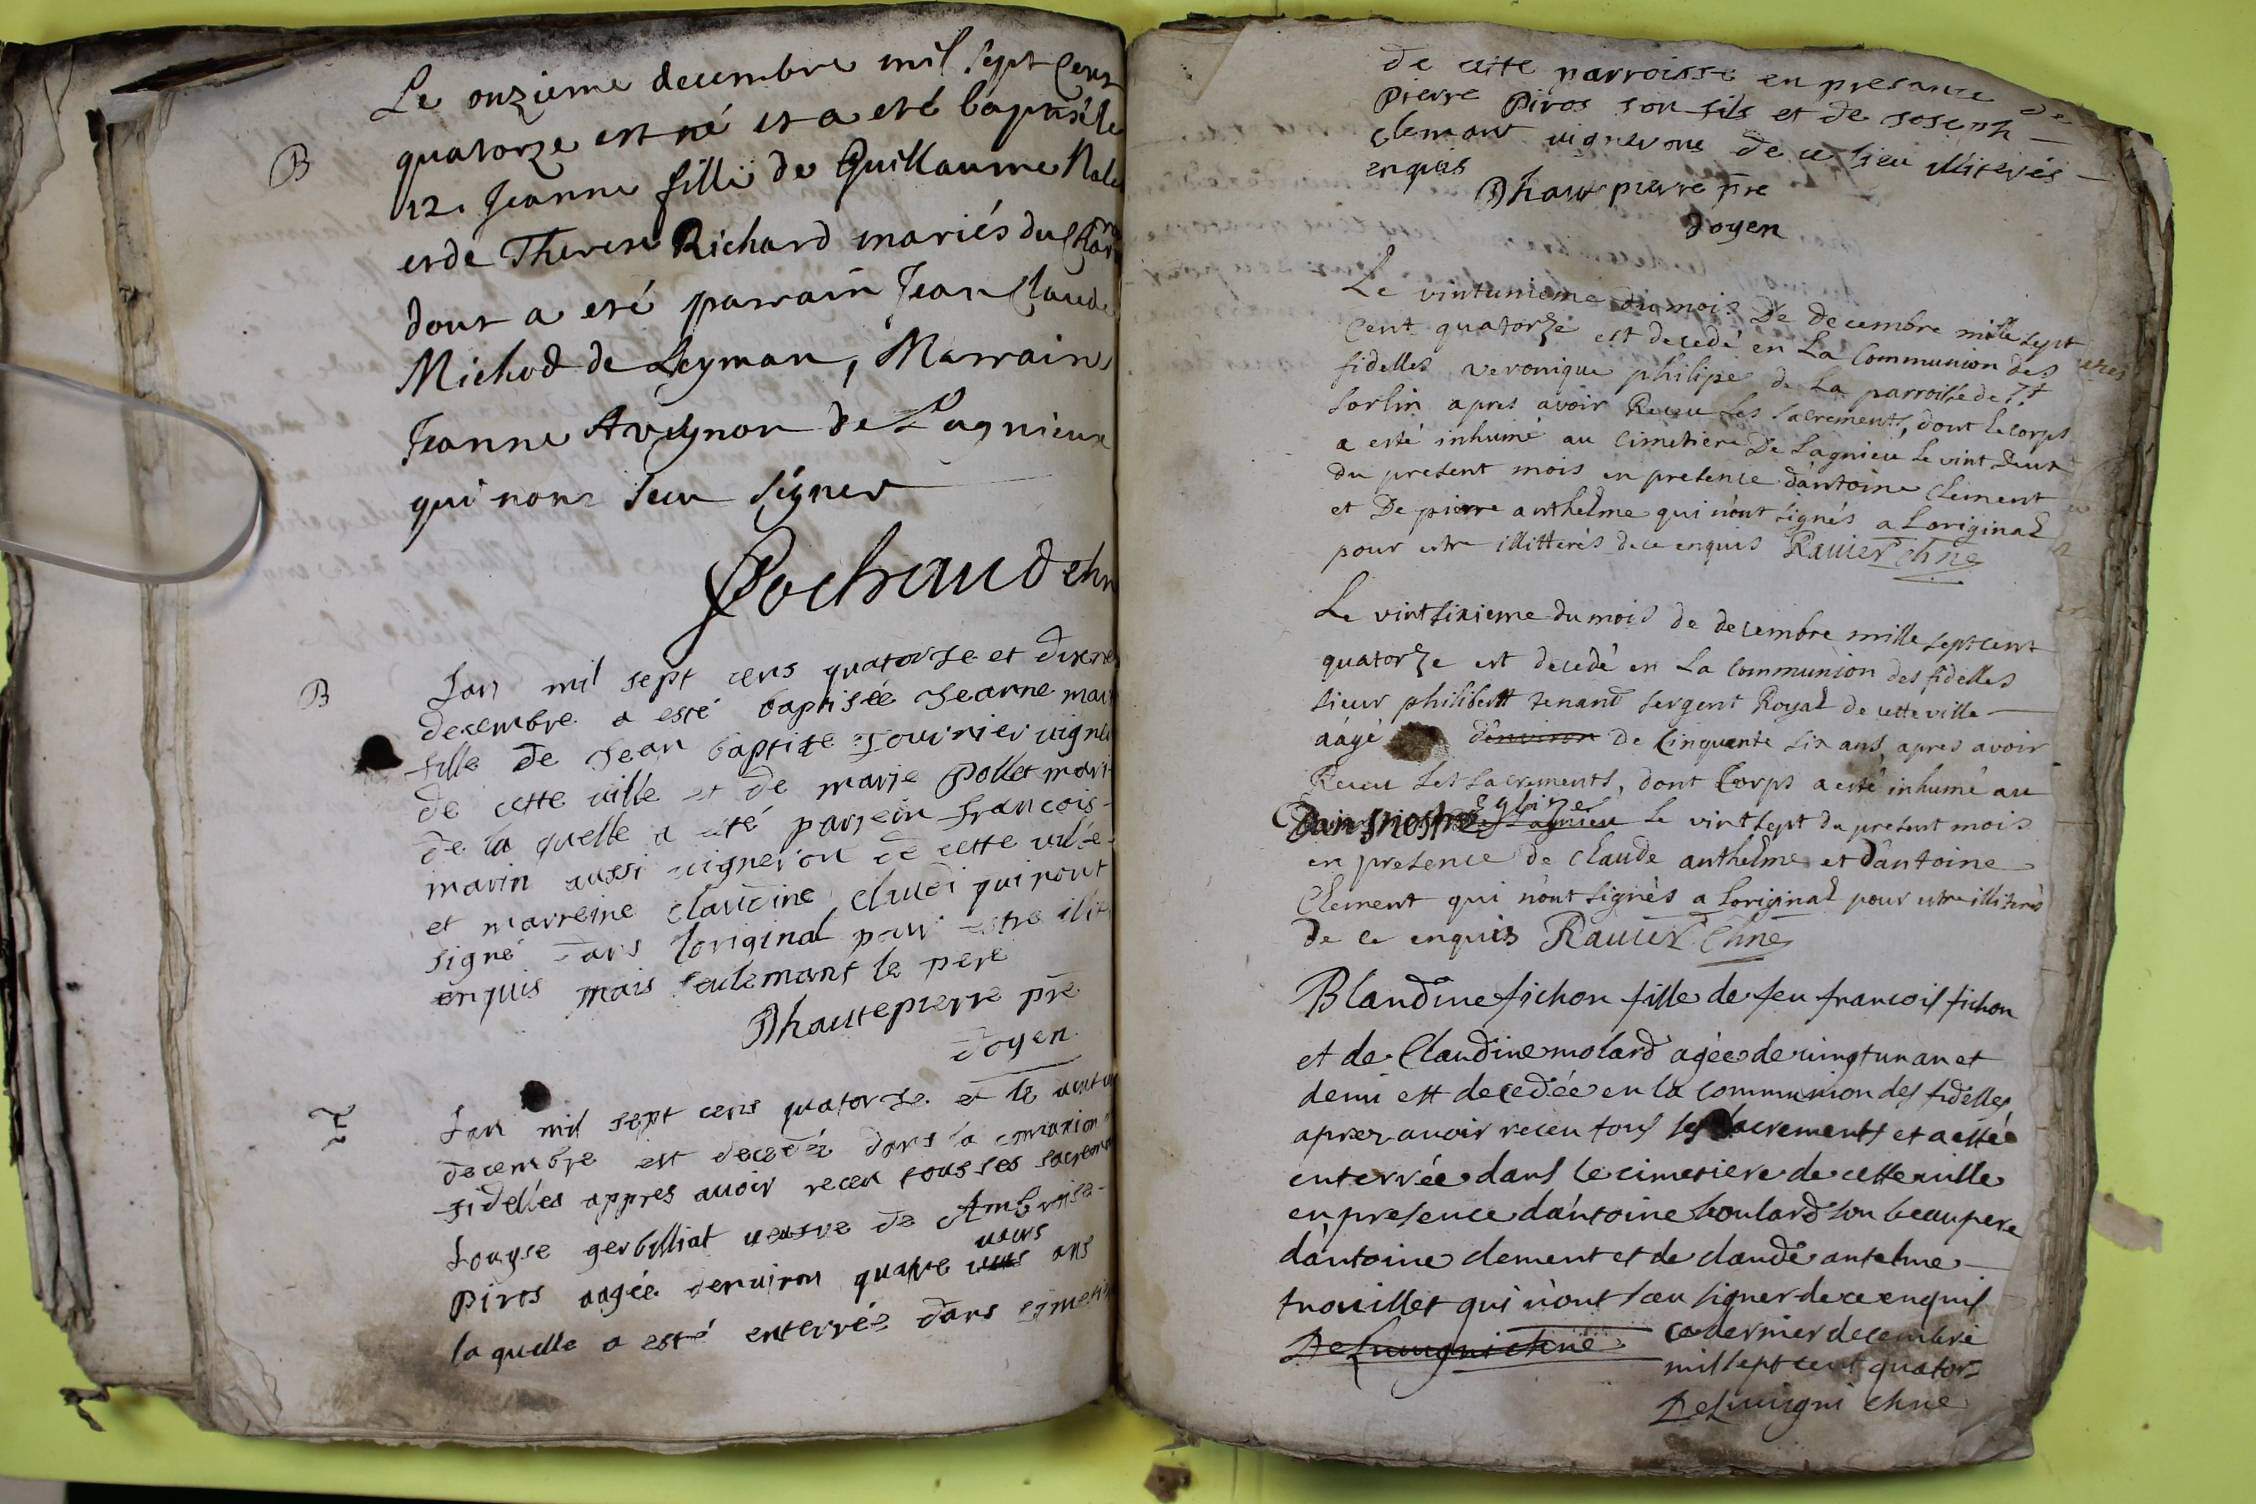 Le onzieme decembre mil sept Cent
B
quatorze est né et a eté baptisé le
12. Jeanne fille de Guillaume
et de Therese Richard mariés du
dont a eté parrain Jean Claude
Michod de Leyman, Marraine
Jeanne Avignon de Lagnieux
qui nont seu signer
Pochaud chne
B
Lan mil sept cens quatorse et
decembre a esté baptisée Jeanne
fille de Jean baptiste fournier
de cette ville et de marie Pollet
de la quelle a été parrein francois
marin aussi vigneron de cette ville
et marreine claudine cludi qui nont
signé dans loriginal pour estre
enquis mais seulemant le pere
Dhautepierre pre
doyen
Lan mil sept cens quatorse et le
decembre est decedée dans la
fidelles appres avoir receu tous ses
Louyse gerbilliat veusve de Ambroise
vins
Piros aagée denviron quatre ans
la quelle a esté enterrée dans
de cette parroisse en presance de
Pierre Piros son fils et de Joseph
Clemant vignerons de ce lieu illiterés
enquis
Dhautpierre pre
doyen
Le vintunieme du mois De decembre mille sept
Cent quatorze est decedé en La Communion des
fidelles veronique philipe de La parroisse de St
Sorlin apres avoir Receu Les sacrements, dont le corps
a esté inhumé au Cimetiere De Lagnieu le vint deux
du present mois en presence d'antoine Clement
et De pierre anthelme qui n'ont signés a Loriginal
pour estre illitterés de ce enquis Ravier chne
Le vintsixieme du mois de decembre mille sept cent
quatorze est decedé en La communion des fidelles
sieur philibertt tenand sergent Royal de cette ville
aàgé denviron De Cinquente six ans apres avoir
Receu Les sacrements, dont Corps a esté inhumé au
Eglize
Dans nostre de Lagnieu Le vintsept du present mois
en presence de Claude anthelme et D'antoine
Clement qui n'ont signés a Loriginal pour estre illiterés
De ce enquis Ravier Chne
Blandine fichon fille de feu francois fichon
et de Claudine molard agée de vingt un an et
demi est decedée en la communion des fidelles
aprez avoir receu tous les sacrements et a esté
enterrée dans le cimetiere de cette ville
en presence d'antoine houlard son beaupere
d'antoine clement et de claude antelme
trouillet qui n'ont sceu signer de ce enquis
ce dernier decembre
mil sept cent quator